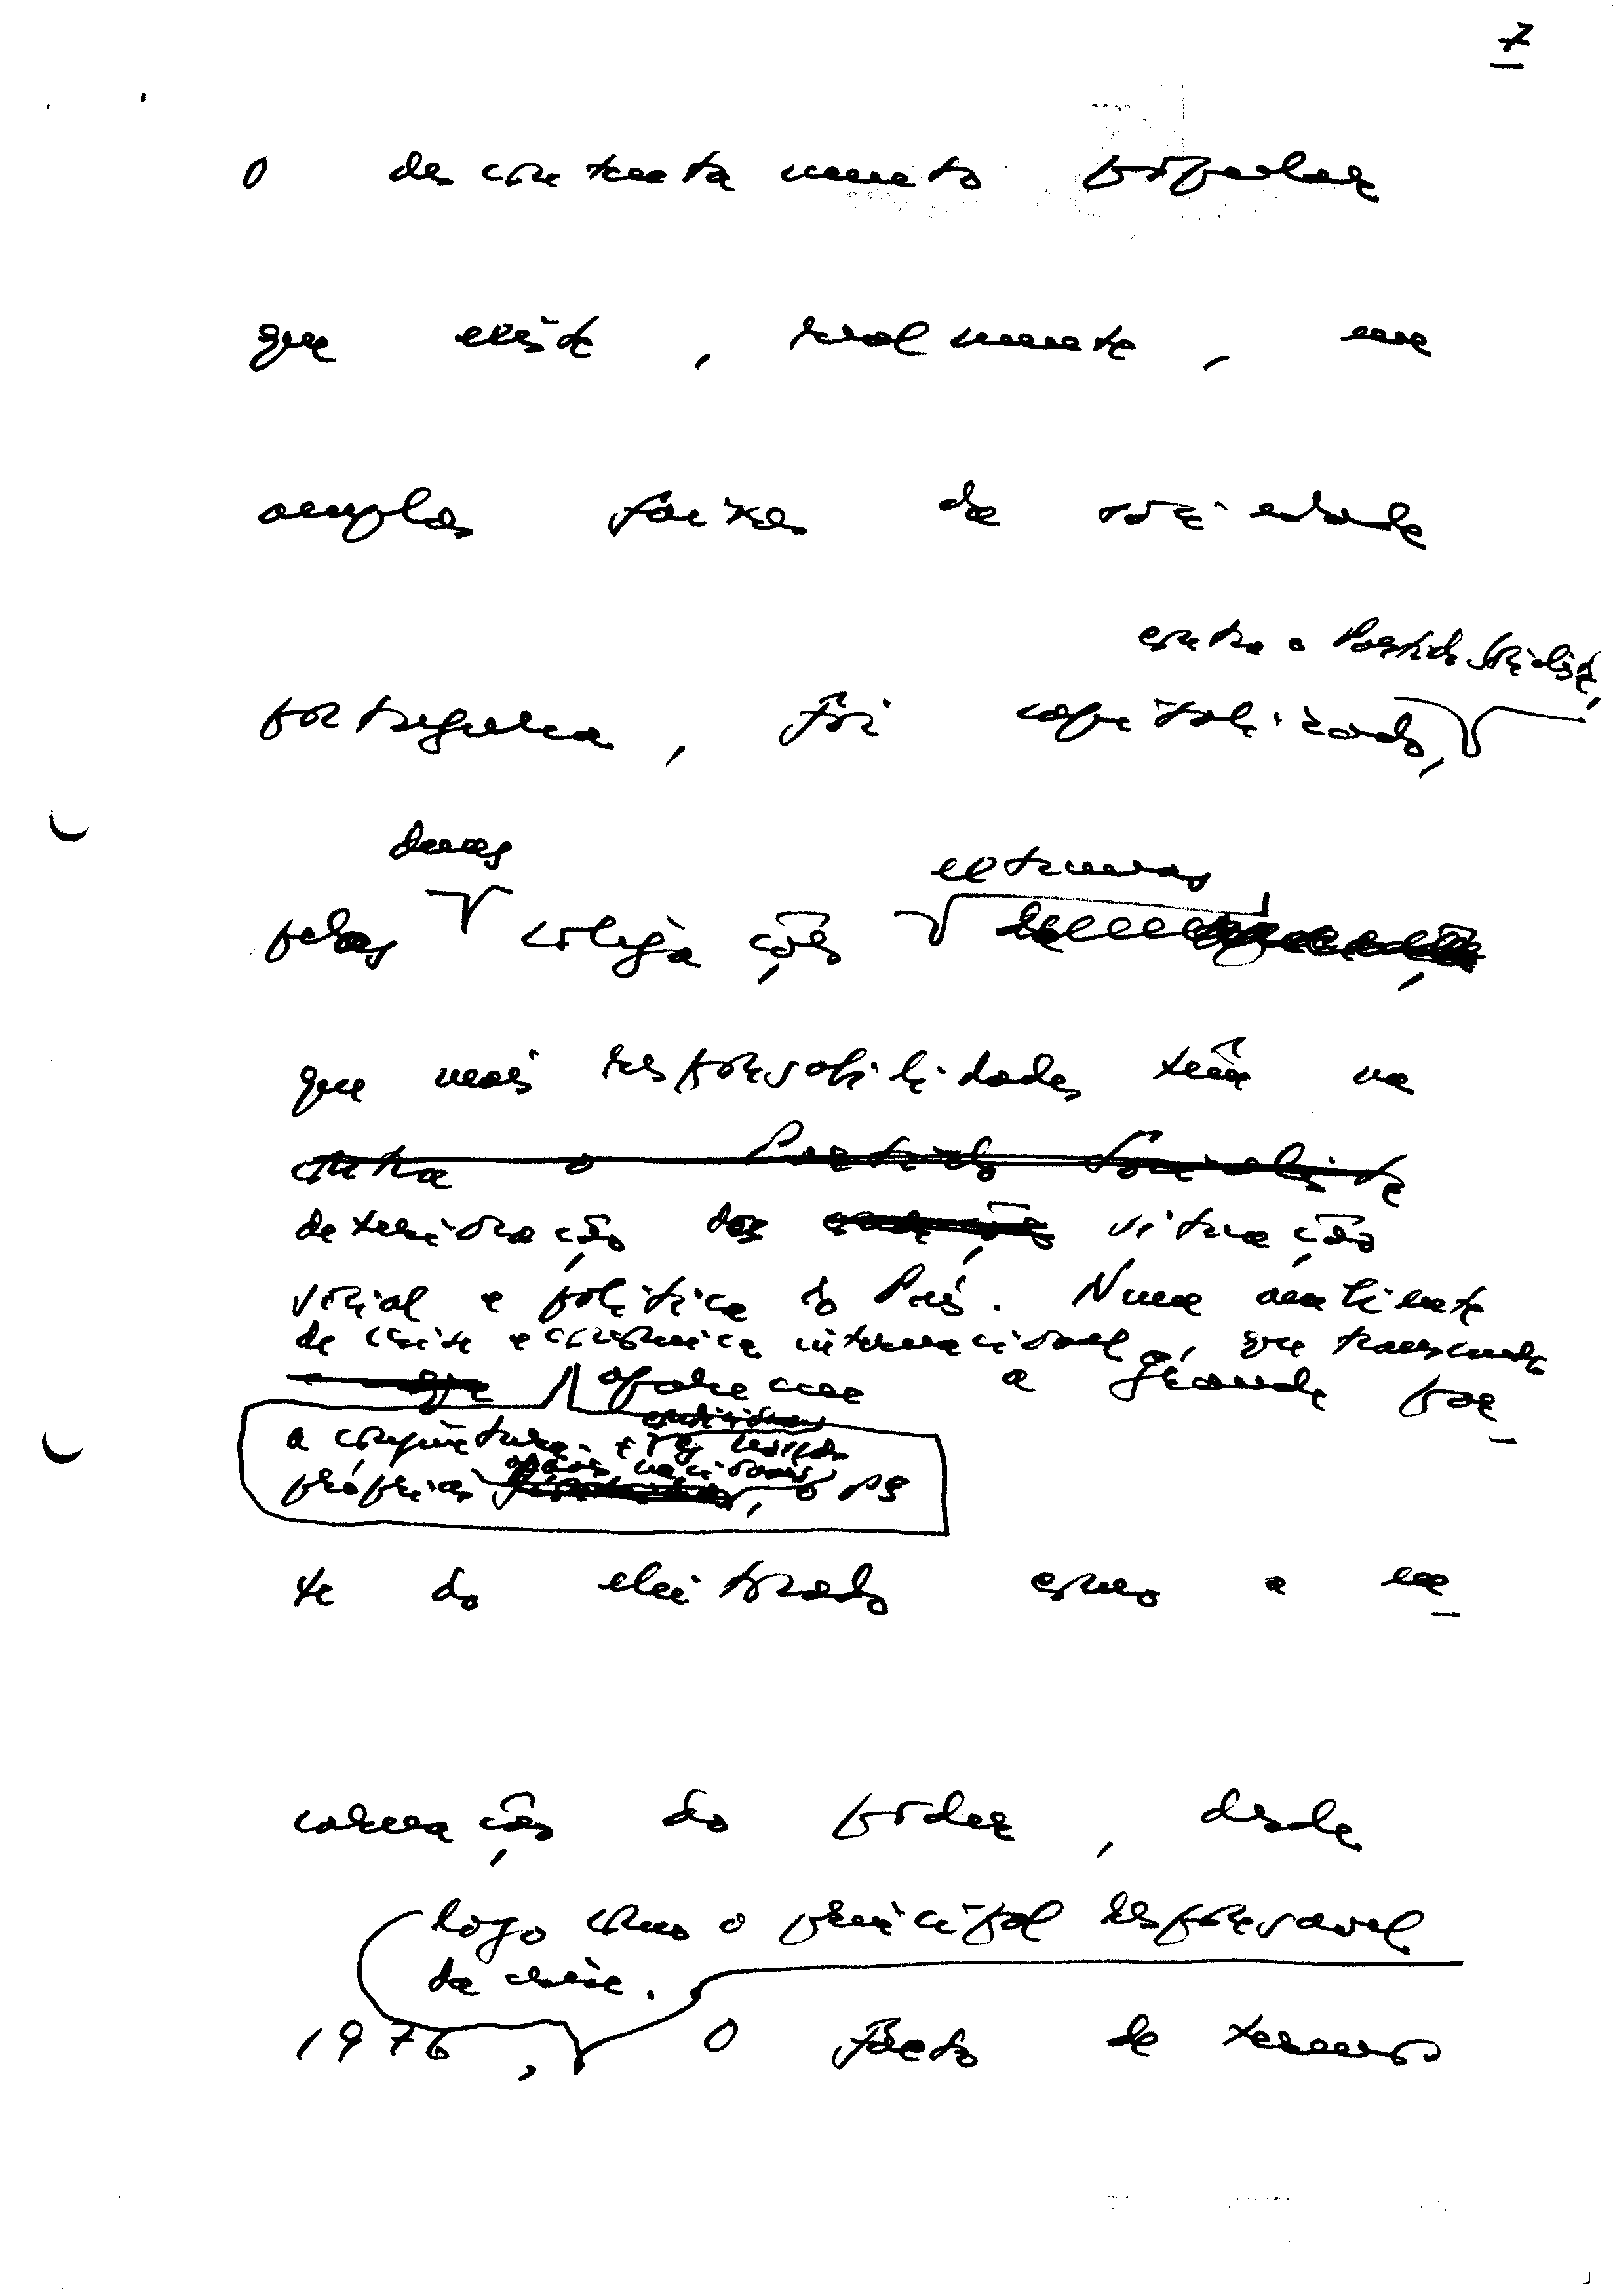 7
O descontentamento popular
que existe, realmente, em
amplas faixas da sociedade
contra o Partido Socialista,
portuguesa, foi capitalizado,
duas
extremas
pelas coligações
que mais responsabilidades têm na
contra o Partido Socialista
deterioração da situação
social e política do País. Num ambiente
de crise económica internacional, que transcende
que aparecem a grande par
a conjuntura e as
próprias opções nacionais, o PS
te do eleitorado como a en
carnação do poder, desde
logo como o principal responsavel
da crise.
1976, O facto de termos